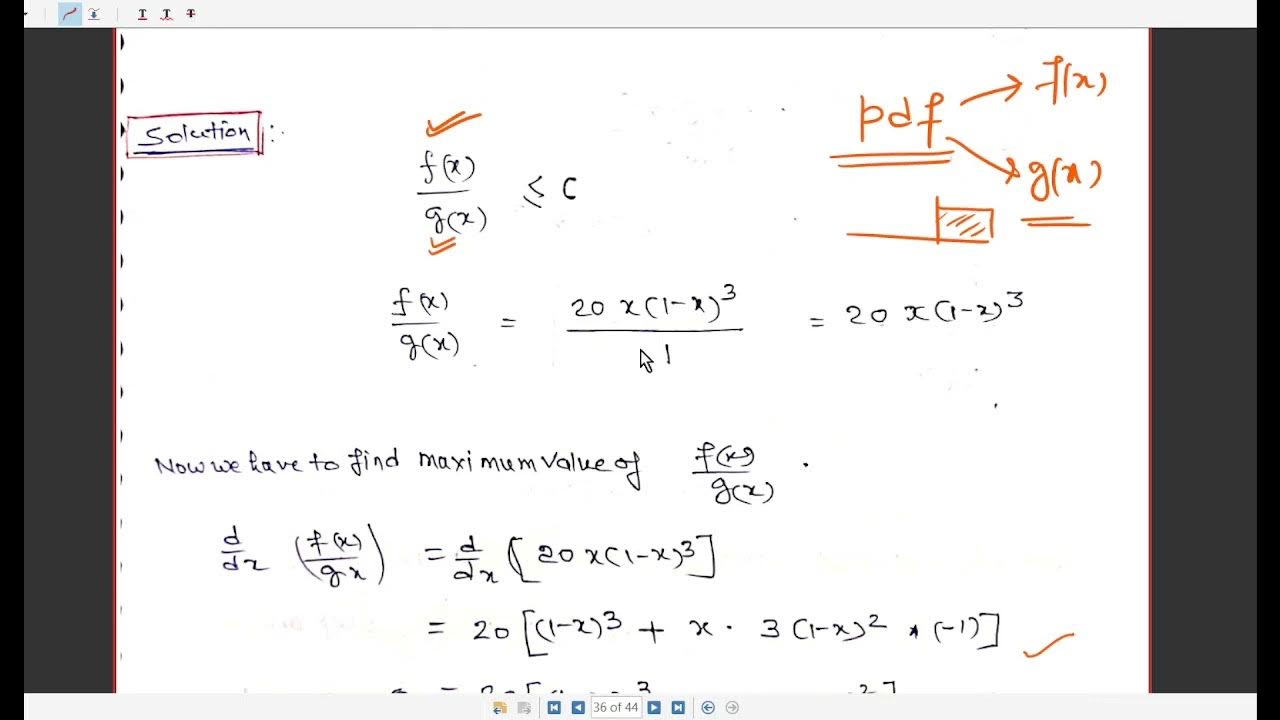 T T T
Solution :
f(x)/g(x) ≤ C
pdf → f(x)
→ g(x)
f(x)/g(x) = 20 x(1-x)^3 / 1 = 20 x(1-x)^3
Now we have to find maximum value of f(x)/g(x) .
d/dx (f(x)/gx) = d/dx [20 x(1-x)^3]
= 20 [(1-x)^3 + x · 3(1-x)^2 * (-1)]
36 of 44